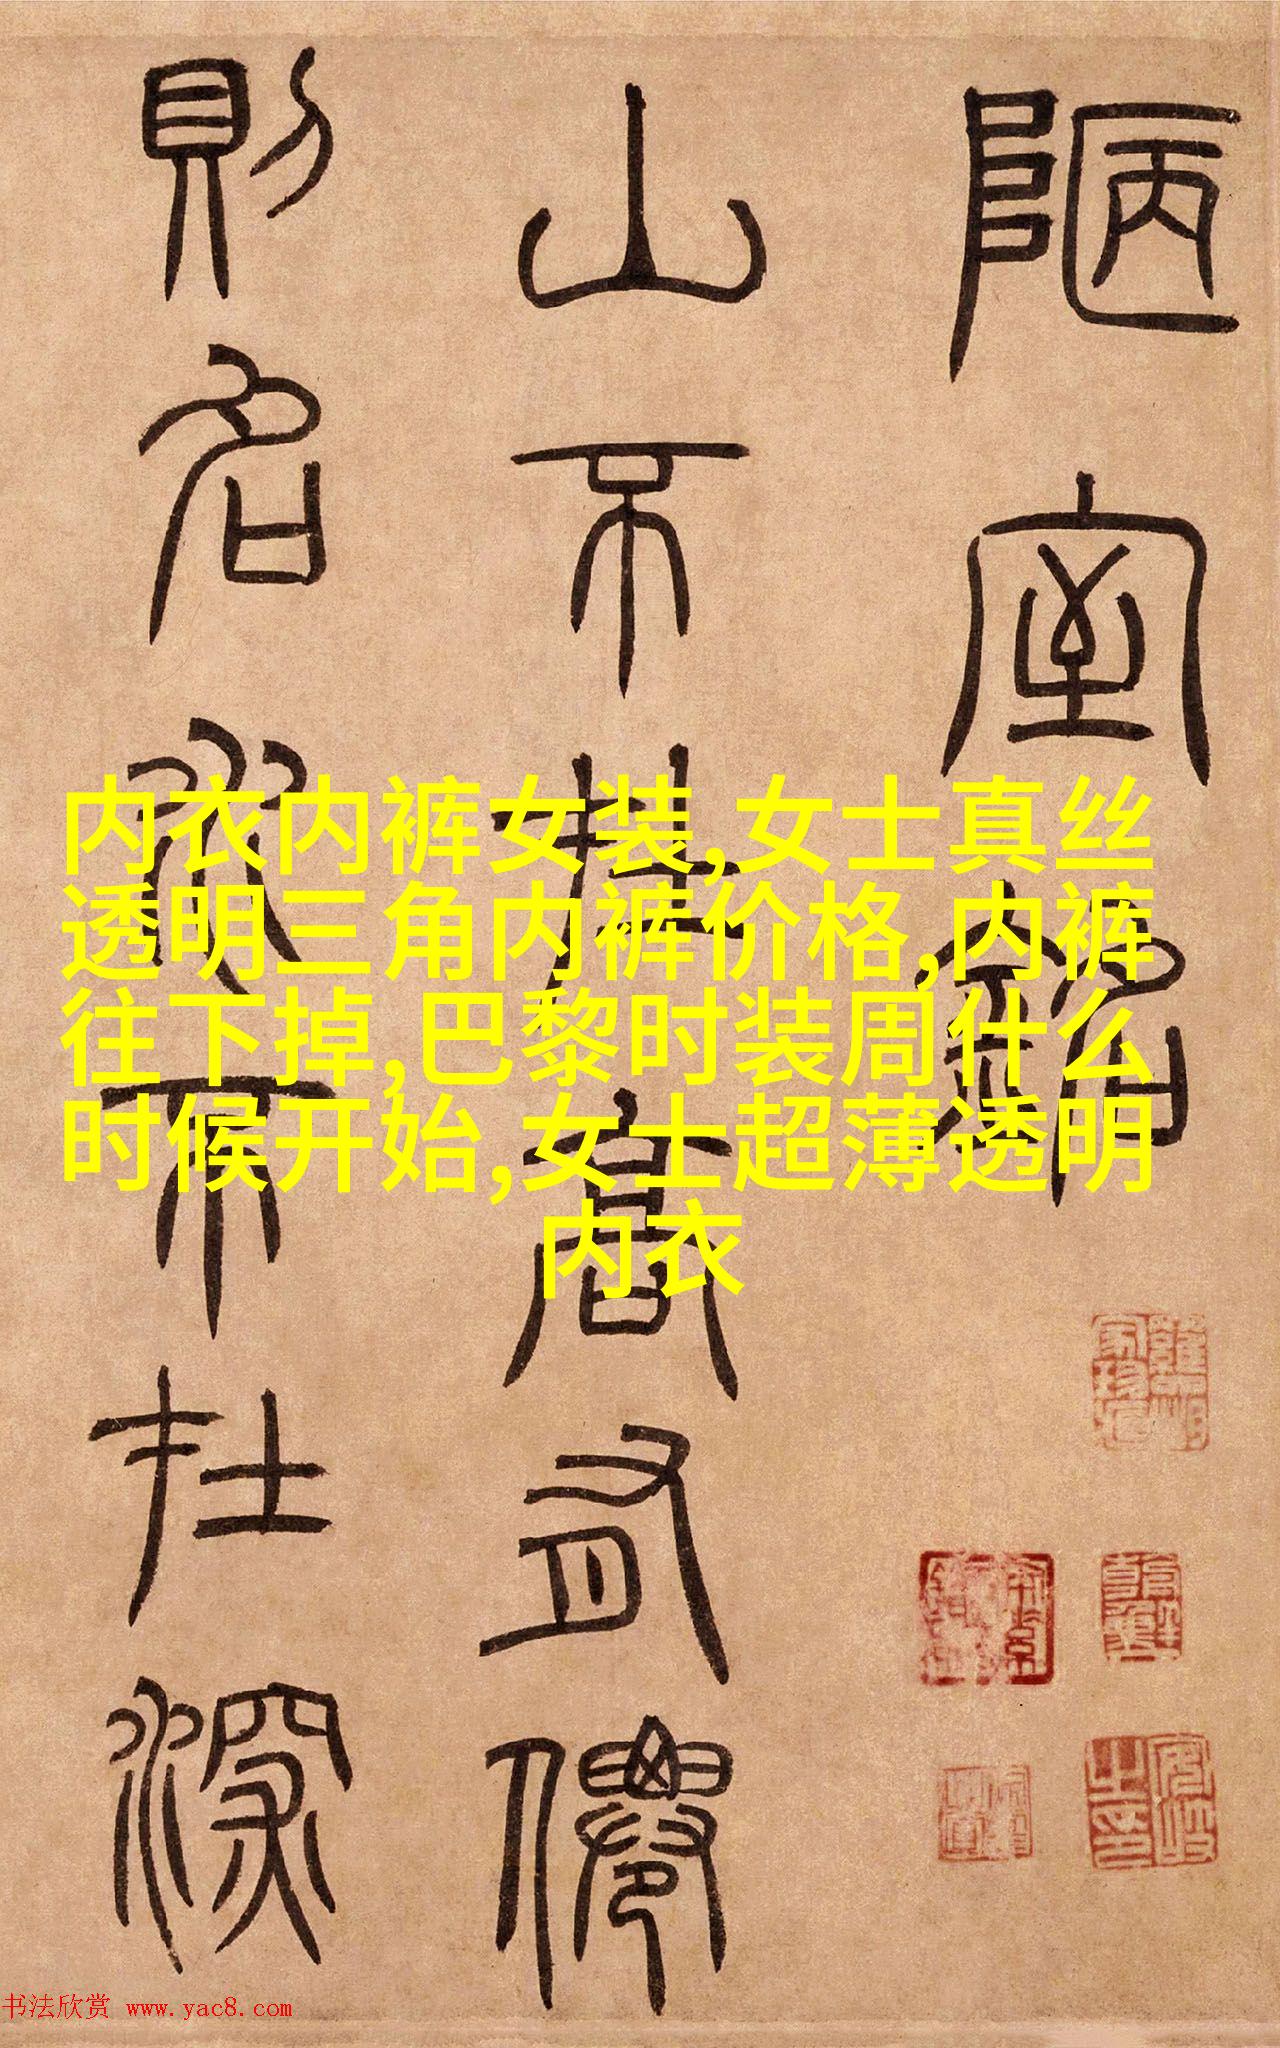 陋室銘
山不在高有僊
則名水不在深
内衣内裤女装,女士真丝
透明三角内裤价格,内裤
往下掉,巴黎时装周什么
时候开始,女士超薄透明
内衣
书法欣赏 www.yac8.com